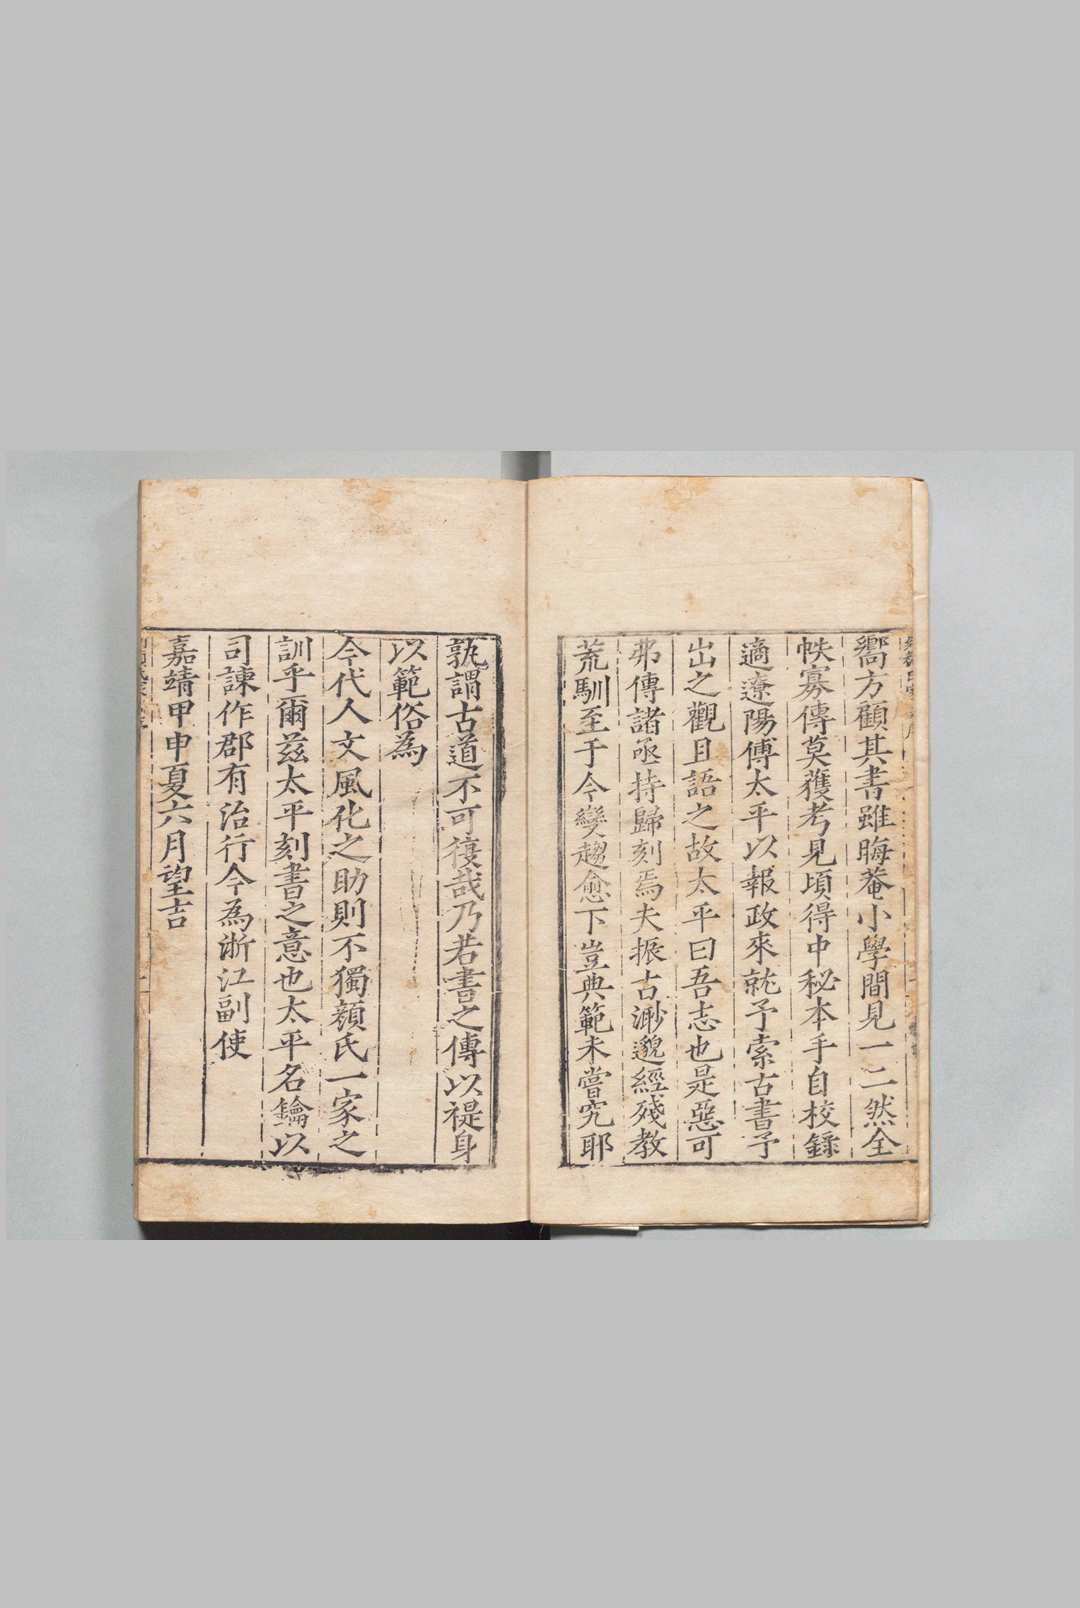 嚮方顧其書雖晦菴小學間見一二然全
帙寡傳莫獲考見頃得中秘本手自校錄
適遼陽傅太平以報政來就予索古書予
出之觀且語之故太平曰吾志也是惡可
弗傳諸亟持歸刻焉夫振古渺邈經殘教
荒馴至于今變趨愈下豈典範未嘗究耶
孰謂古道不可復哉乃若書之傳以禔身
以範俗為
今代人文風化之助則不獨顏氏一家之
訓乎爾茲太平刻書之意也太平名鑰以
司諫作郡有治行今為浙江副使
嘉靖甲申夏六月望吉